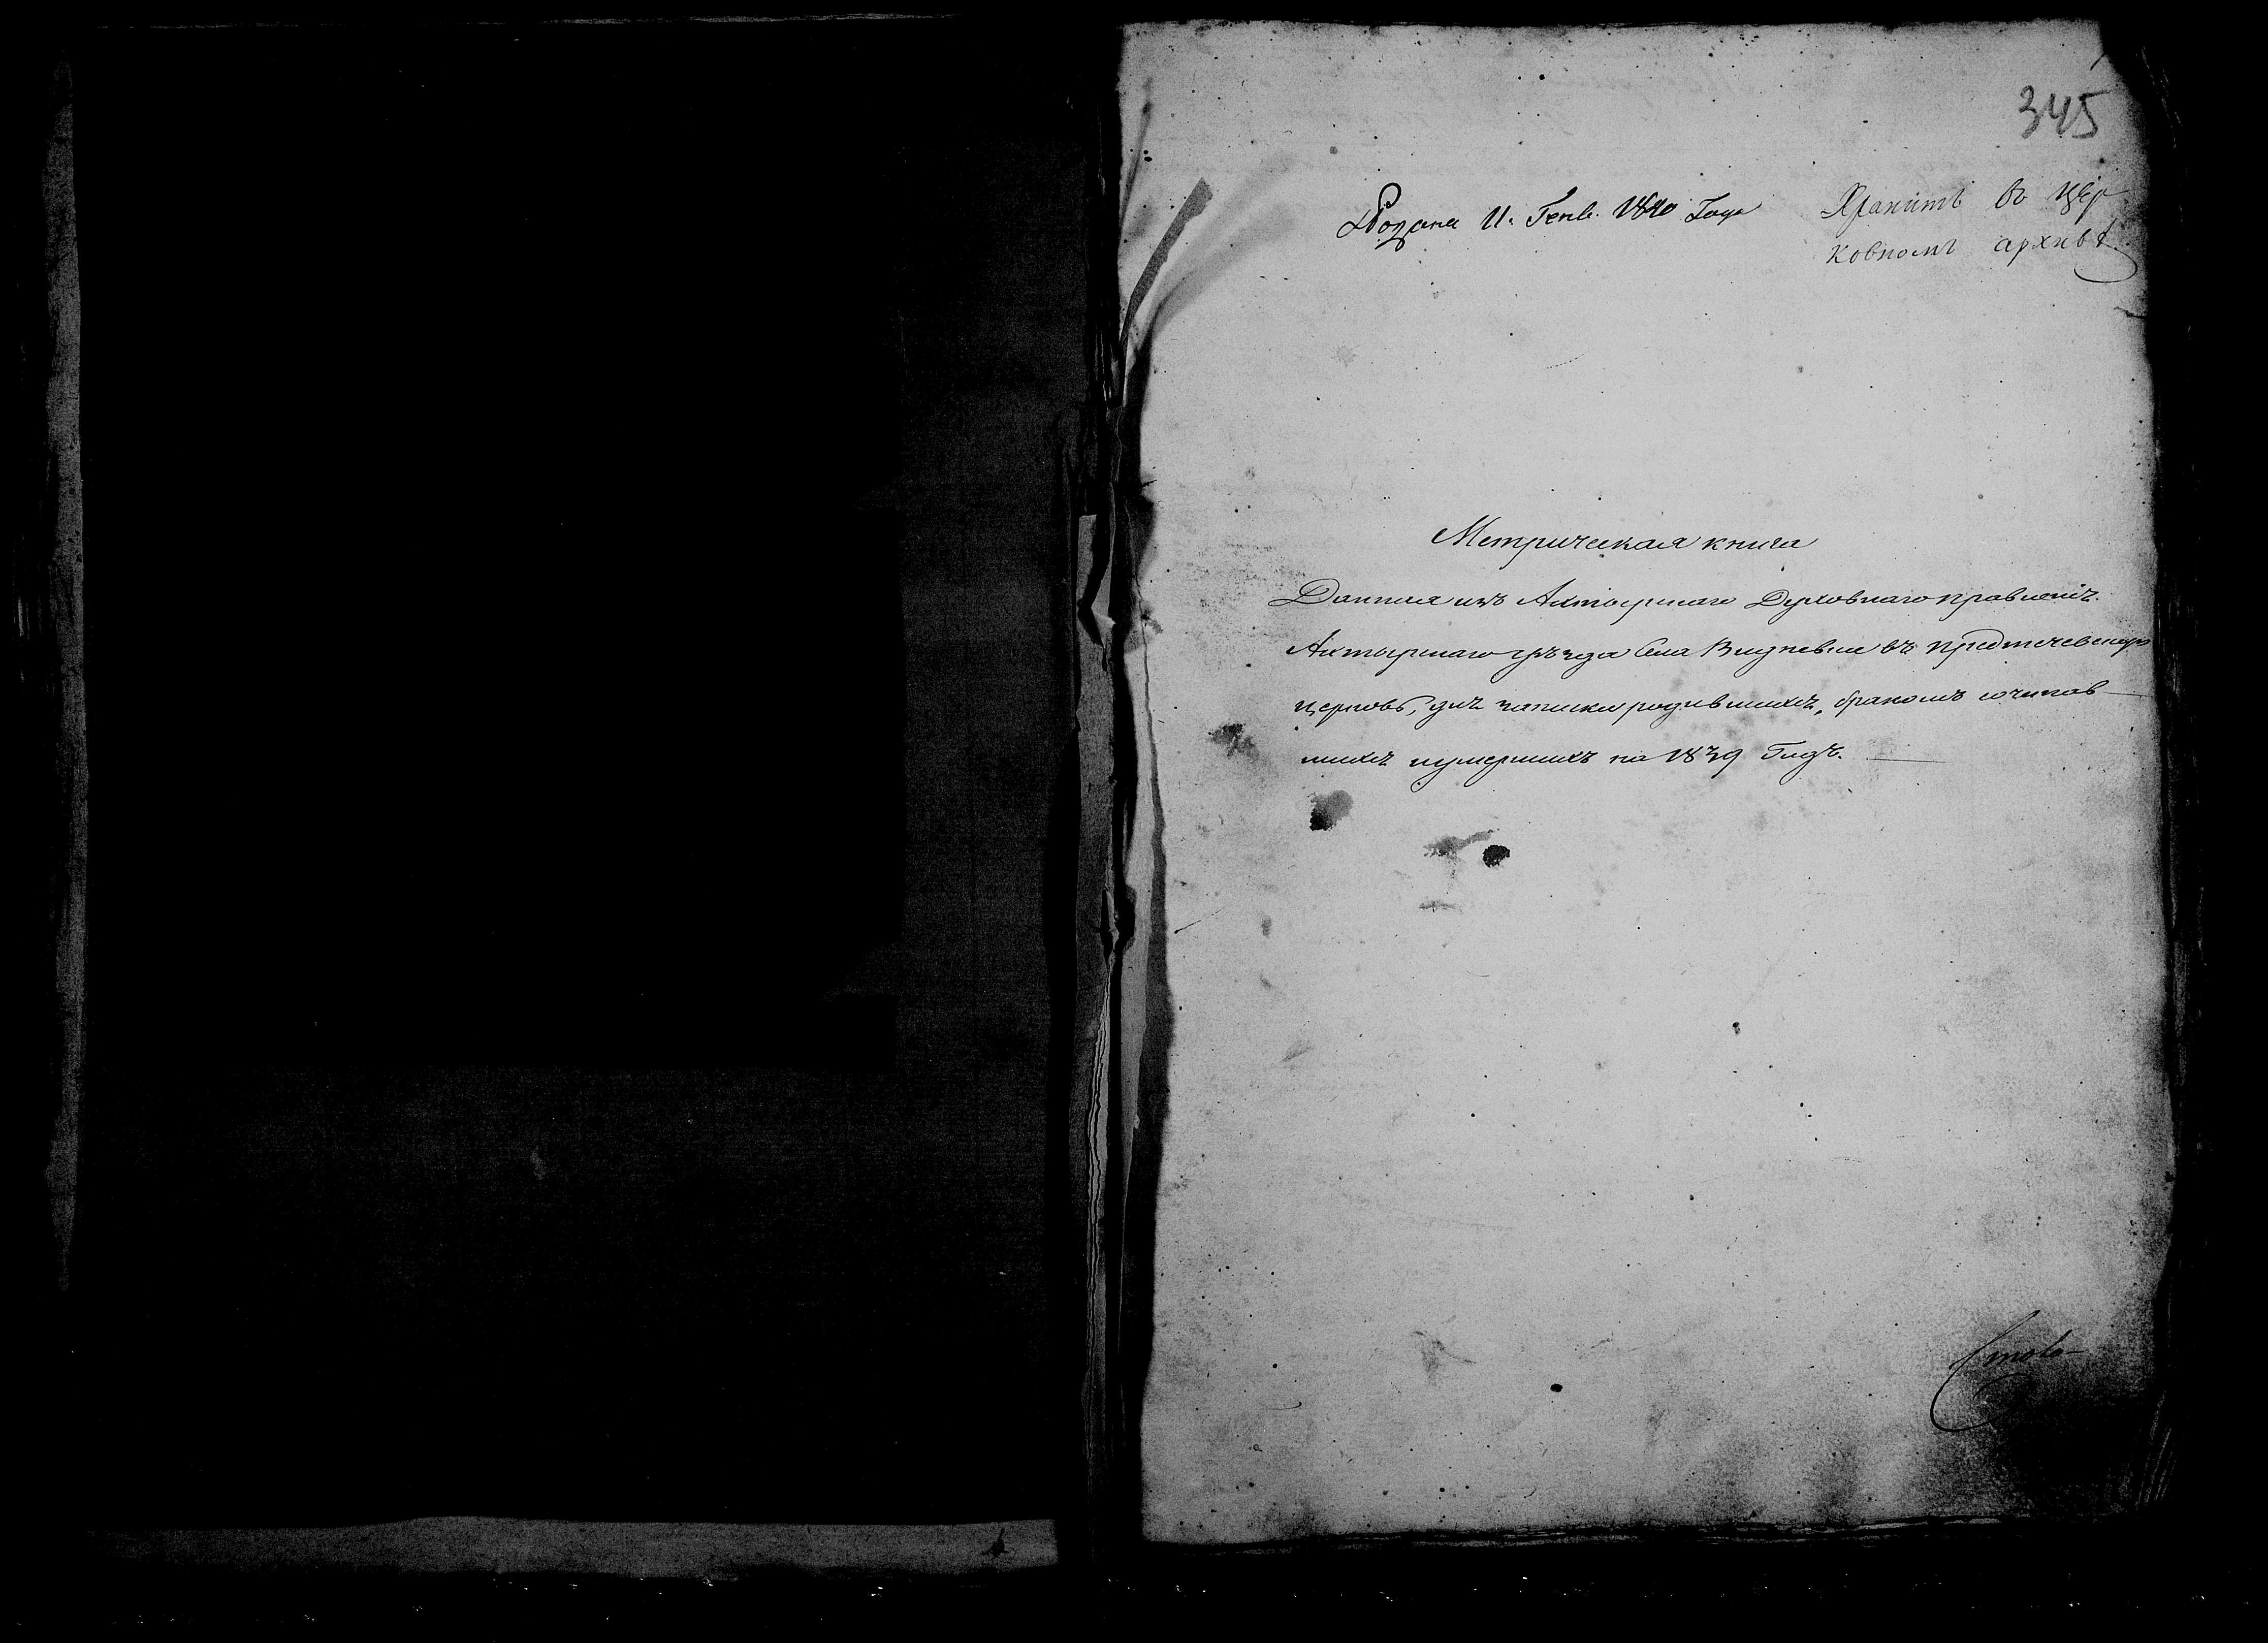 345
Подана 11. Генв. 1840 Года
Хранить въ Цер
ковномъ архивѣ
Метрическая книга
Данная изъ Ахтырскаго Духовнаго правленія.
Ахтырскаго уѣзда Села в Предтечевскую
церковь, для записки родившихся, бракомъ сочетав
шихся и умершихъ на 1839 Годъ.